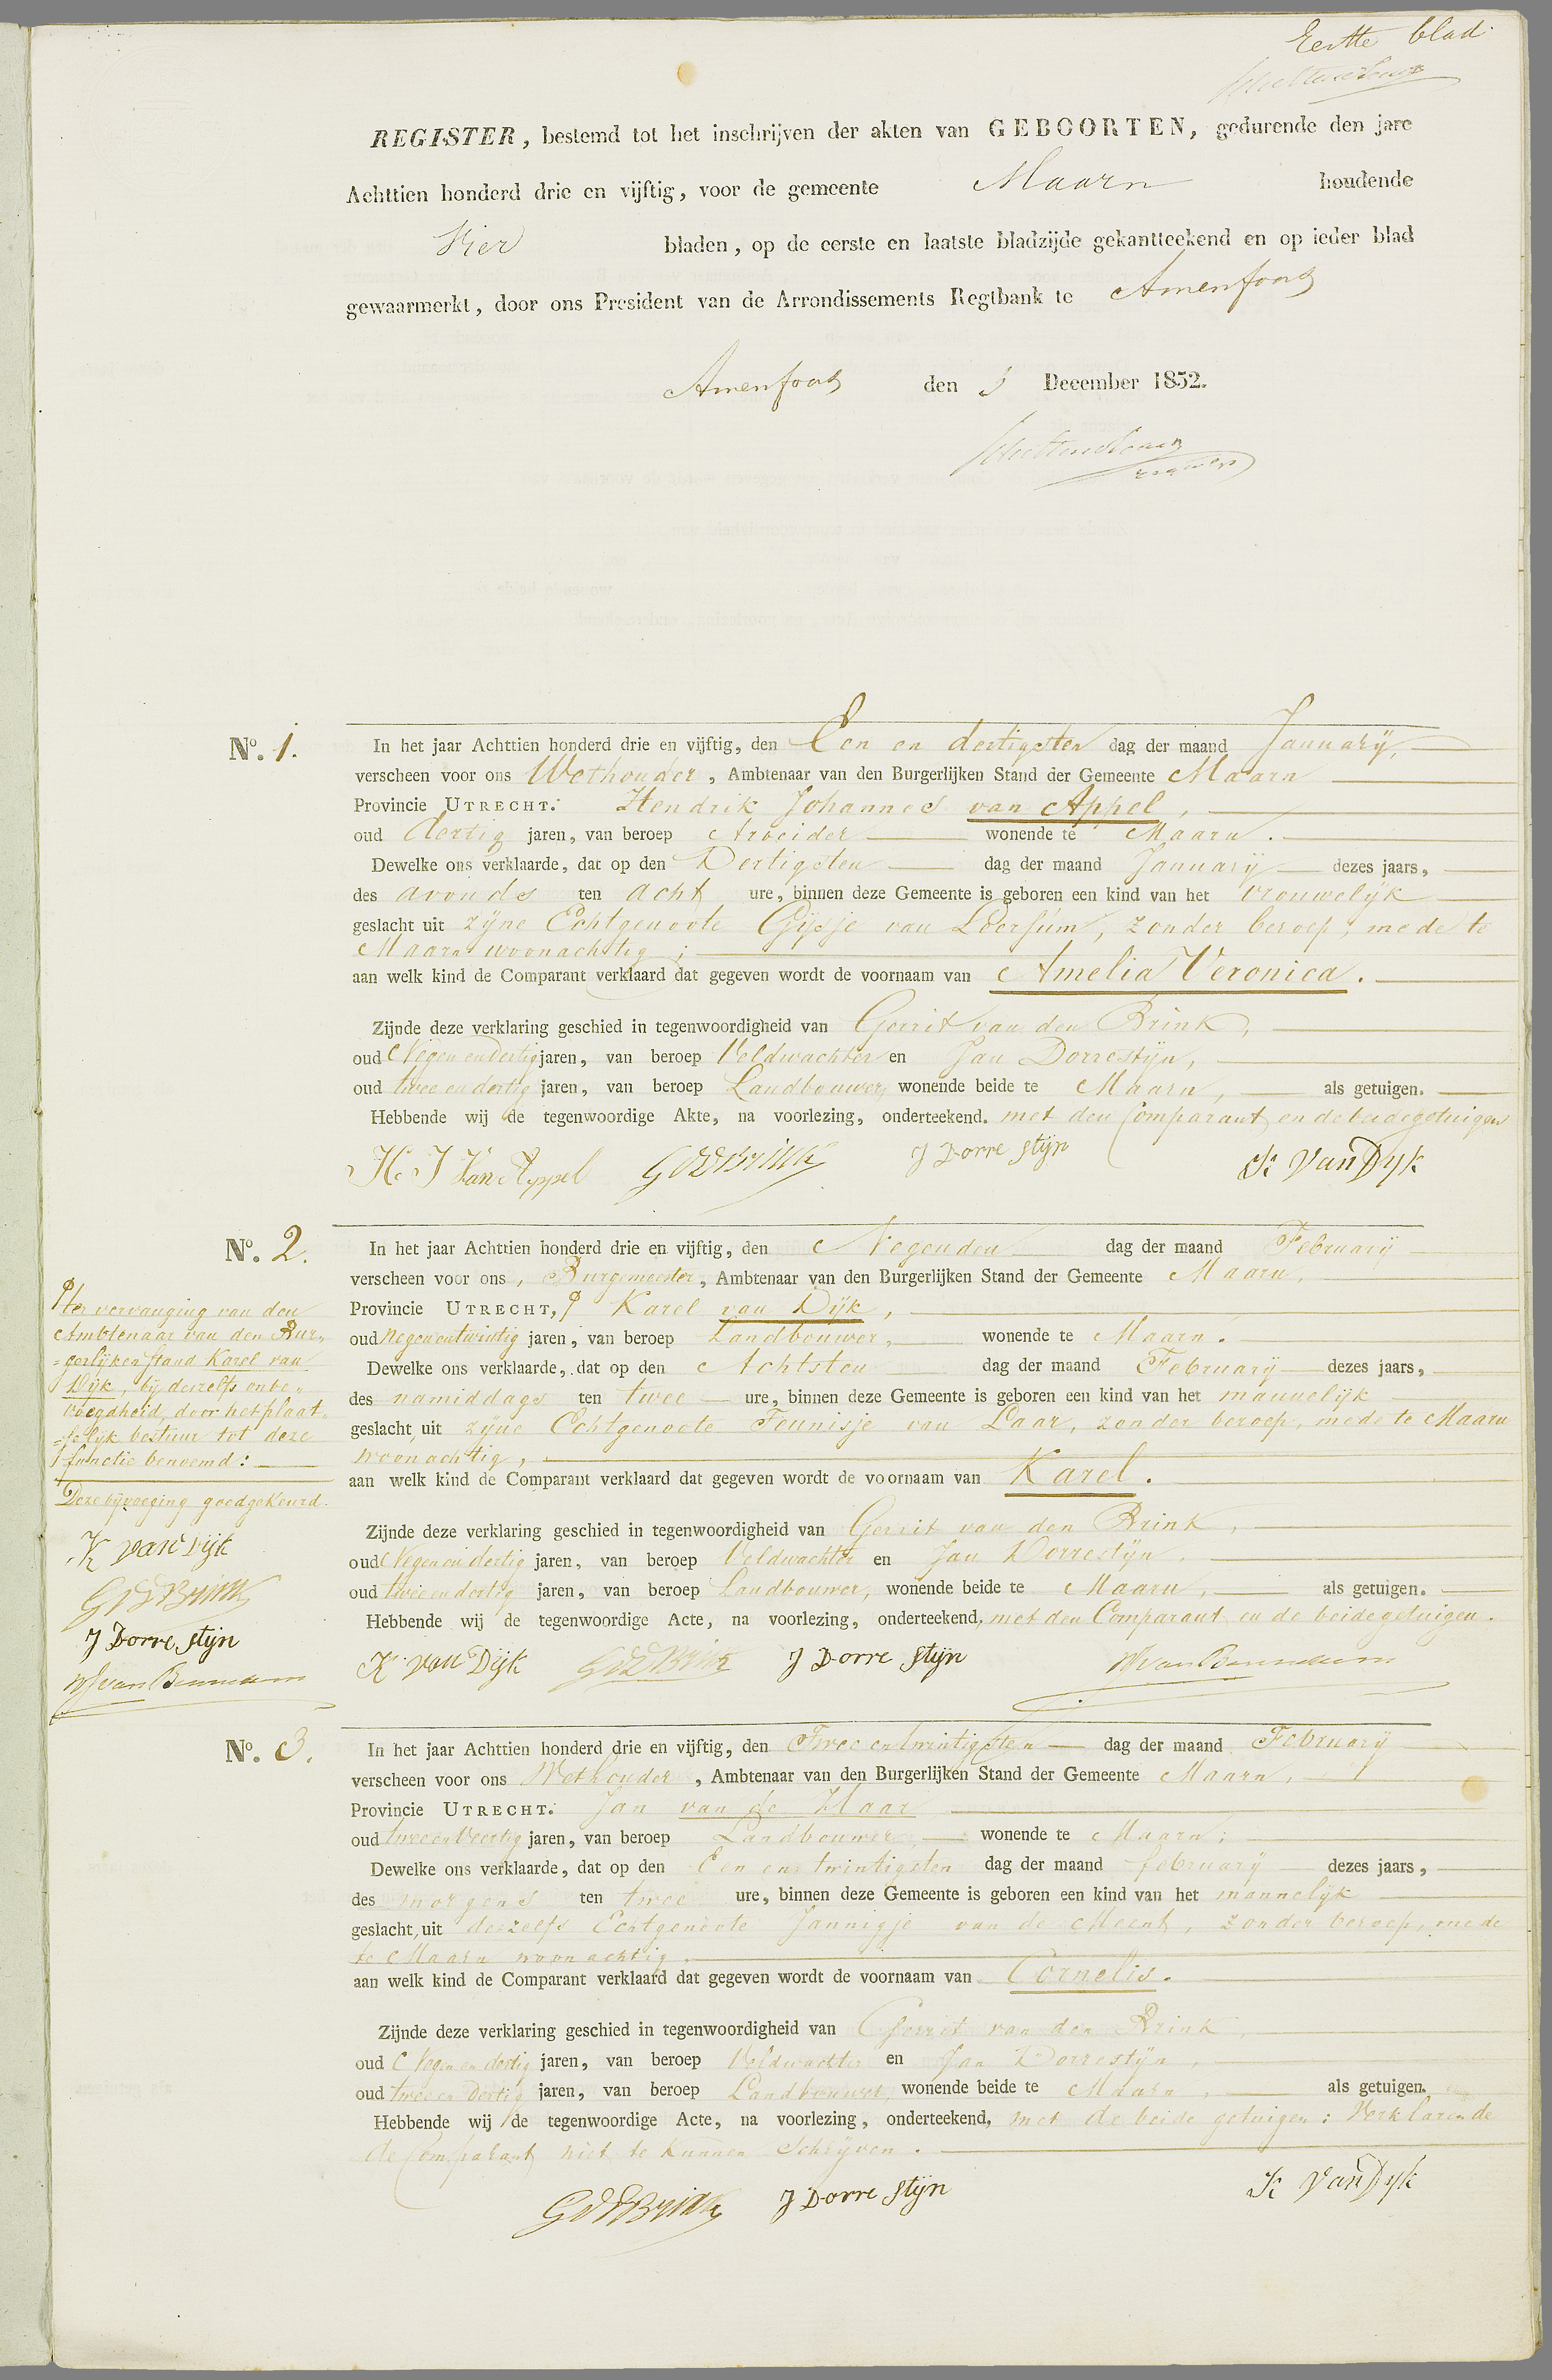 Eerste blad
REGISTER, bestemd tot het inschrijven der akten van GEBOORTEN, gedurende den jare
Achttien honderd drie en vijftig, voor de gemeente Maarn houdende
Vier bladen, op de eerste en laatste bladzijde gekantteekend en op ieder blad
gewaarmerkt, door ons President van de Arrondissements Regtbank te Amersfoort
Amersfoort den 3 December 1852.
No. 1.
In het jaar Achttien honderd drie en vijftig, den Een en dertigsten dag der maand Januarij,
verscheen voor ons Wethouder, Ambtenaar van den Burgerlijken Stand der Gemeente Maarn
Provincie UTRECHT. Hendrik Johannes van Appel,
oud dertig jaren, van beroep Arbeider wonende te Maarn.
Dewelke ons verklaarde, dat op den Dertigsten dag der maand Januarij dezes jaars,
des avonds ten acht ure, binnen deze Gemeente is geboren een kind van het vrouwelijk
geslacht uit zijne Echtgenoote Gijsje van Loersum, zonder beroep, mede te
Maarn woonachtig;
aan welk kind de Comparant verklaard dat gegeven wordt de voornaam van Amelia Veronica.
Zijnde deze verklaring geschied in tegenwoordigheid van Gerrit van den Brink,
oud Negen en dertig jaren, van beroep Veldwachter en Jan Dorrestijn,
oud twee en dertig jaren, van beroep Landbouwer, wonende beide te Maarn, als getuigen.
Hebbende wij de tegenwoordige Akte, na voorlezing, onderteekend. met den Comparant en de beide getuigen
H. J Van Appel GvdBrink J Dorrestijn K Van Dijk
No. 2.
In het jaar Achttien honderd drie en vijftig, den Negenden dag der maand Februarij
verscheen voor ons, Burgemeester, Ambtenaar van den Burgerlijken Stand der Gemeente Maarn,
Provincie UTRECHT, Karel van Dijk,
oud negen en twintig jaren, van beroep Landbouwer, wonende te Maarn.
Dewelke ons verklaarde, dat op den Achtsten dag der maand Februarij dezes jaars,
des namiddags ten twee ure, binnen deze Gemeente is geboren een kind van het mannelijk
geslacht, uit zijne Echtgenoote Teunisje van Laar, zonder beroep, mede te Maarn
woonachtig,
aan welk kind de Comparant verklaard dat gegeven wordt de voornaam van Karel.
Zijnde deze verklaring geschied in tegenwoordigheid van Gerrit van den Brink,
oud Negen en dertig jaren, van beroep Veldwachter en Jan Dorrestijn,
oud twee en dertig jaren, van beroep Landbouwer, wonende beide te Maarn, als getuigen.
Hebbende wij de tegenwoordige Acte, na voorlezing, onderteekend, met den Comparant en de beide getuigen.
K van Dijk GvdBrink J Dorrestijn
ter vervanging van den
Ambtenaar van den Bur„
„gerlijken stand Karel van
Dijk, bij deszelfs onbe„
voegdheid, door het plaat„
„selijk bestuur tot deze
functie benoemd:
Deze bijvoeging goedgekeurd.
K van Dijk
GvdBrink
J Dorrestijn
No. 3.
In het jaar Achttien honderd drie en vijftig, den Twee en twintigsten dag der maand Februarij
verscheen voor ons Wethouder, Ambtenaar van den Burgerlijken Stand der Gemeente Maarn,
Provincie UTRECHT. Jan van de Haar
oud twee en Veertig jaren, van beroep Landbouwer, wonende te Maarn;
Dewelke ons verklaarde, dat op den Een en twintigsten dag der maand februarij dezes jaars,
des morgens ten twee ure, binnen deze Gemeente is geboren een kind van het mannelijk
geslacht, uit deszelfs Echtgenoote Jannigje van de Meent, zonder beroep, mede
te Maarn woonachtig.
aan welk kind de Comparant verklaard dat gegeven wordt de voornaam van Cornelis.
Zijnde deze verklaring geschied in tegenwoordigheid van Gerrit van den Brink,
oud Negen en dertig jaren, van beroep Veldwachter en Jan Dorrestijn,
oud twee en Dertig jaren, van beroep Landbouwer, wonende beide te Maarn, als getuigen.
Hebbende wij de tegenwoordige Acte, na voorlezing, onderteekend, met de beide getuigen: Verklarende
de Comparant niet te kunnen Schrijven.
GvdBrink J Dorrestijn K Van Dijk